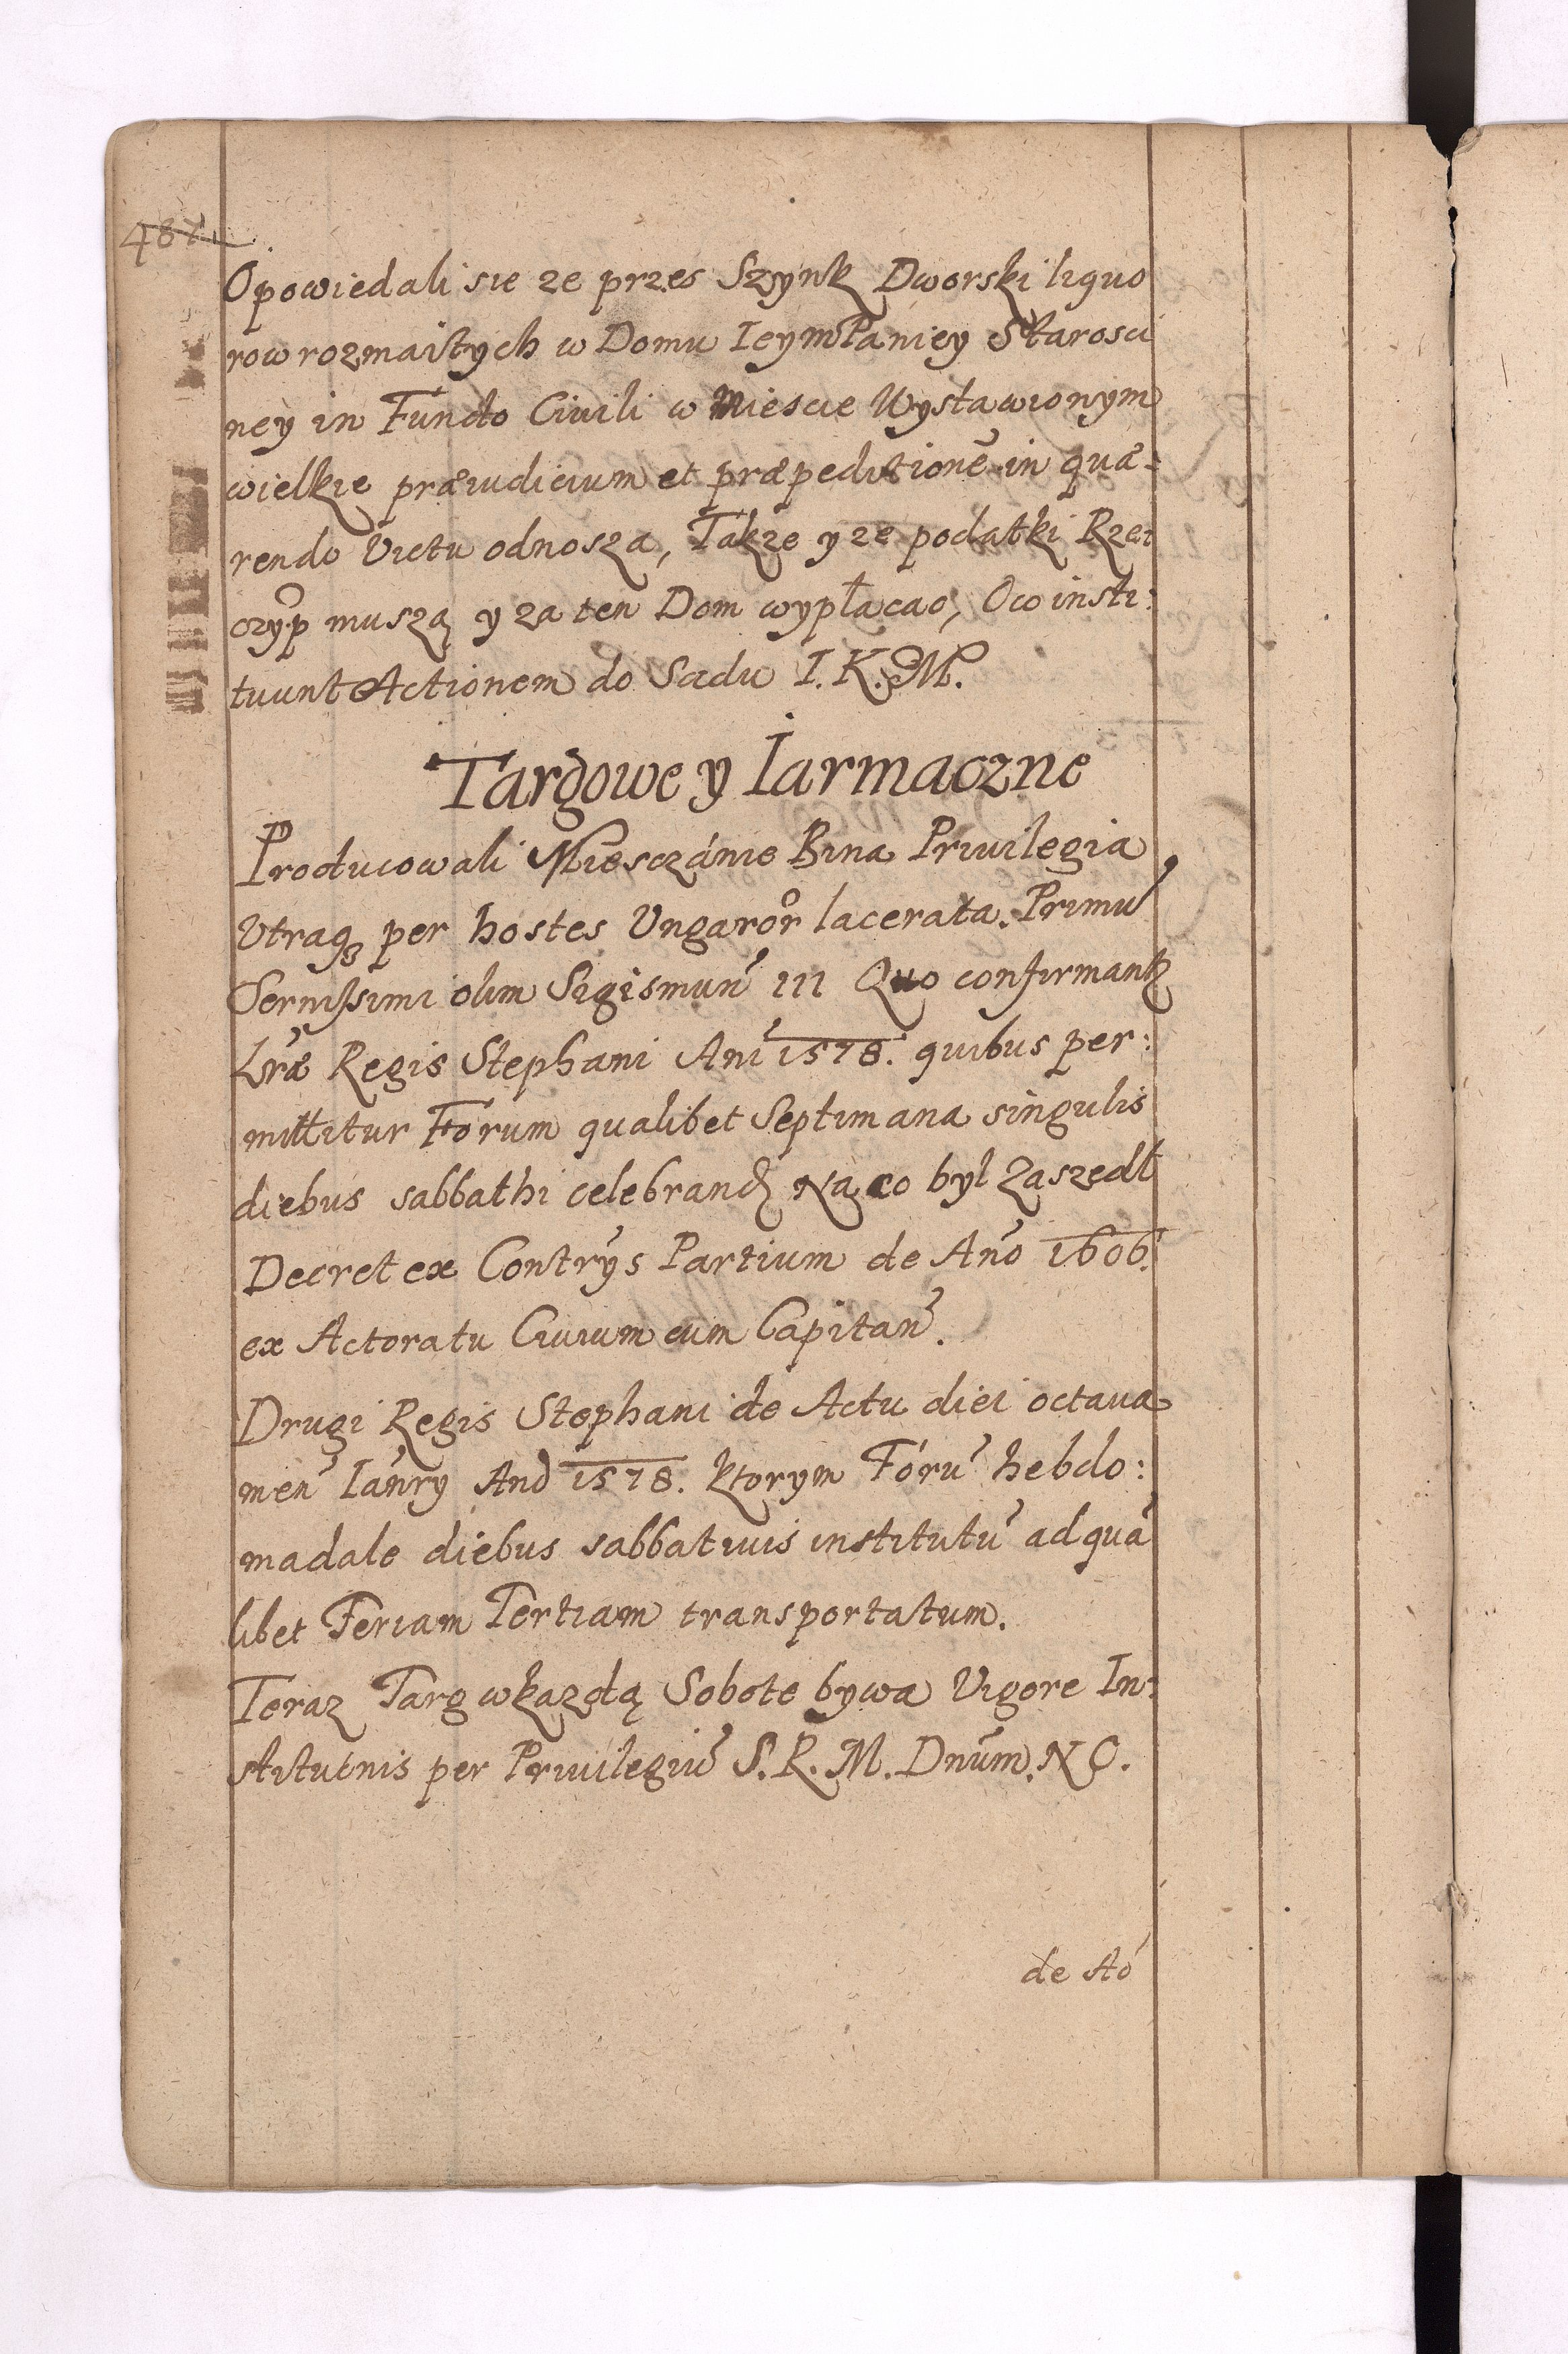 487
Opowiedali sie ze przes Szynk Dworski liquo
row rozmaitych w Domu IeymPaniey Starosci
ney in Fundo Ciuili w Miescie Wystawionym
wielkie præiudicium et præpeditionẽ in quæ=
rendo Victu odnosza, Takze y ze podatki Rzei
czyp muszą y za ten Dom wypłacac, Oco insti:
tuunt Actionem do Sadu I. K. M.
Targowe y Iarmaczne
Producowali Miesczánie Bina Priuilegia
Vtraqȝ per hostes Ungaror lacerata. Primũ
Sernissimi olim Sigismuñ III Quo confirmantꝶ
Lr̃æ Regis Stephani Añi 1578. quibus per:
mittitur Forum qualibet Septimana singulis
diebus sabbathi celebrand Na co byl Zaszedł
Decret ex Contrỹs Partium de Año 1606.
ex Actoratu Ciuium cum Capitañ.
Drugi Regis Stephani de Actu diei octaua
meñ Iañry Ano 1578. ktorym Forũ hebdo:
madale diebus sabbatiuis institutũ ad quã
libet Feriam Tertiam transportatum.
Teraz Targ wkazdą Sobote bywa Vigore In:
stitutnis per Priuilegiũ S. R. M. Dnũm. N C.
de Aõ